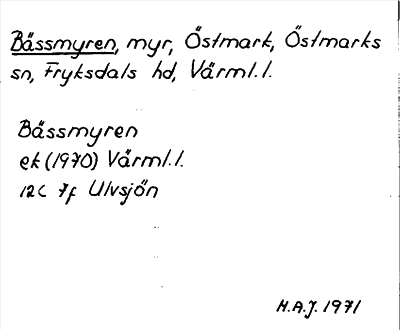 Bässmyren, myr, Östmark, Östmarks
sn, Fryksdals hd, Värml.l.
Bässmyren
ek (1970) Värml.l.
12C 7f Ulvsjön
H.A.J. 1971